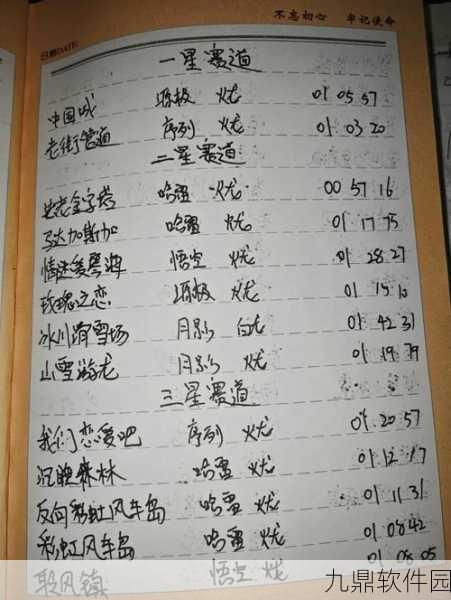 不忘初心 牢记使命
日期DATE:
一星赛道
中国城 极 01 05 57
老街管道 序列 01 03 20
二星赛道
金字塔 哈雷 00 57 16
马达加斯加 哈雷 01 17 75
情迷爱琴海 悟空 01 28 27
玫瑰之恋 极 01 15
冰川滑雪场 月影 01 42 31
山雪游龙 月影 01 19 79
三星赛道
我们恋爱吧 序列 01 20 57
沉睡森林 哈雷 01 12 17
反向彩虹风车岛 哈雷 01 11 31
彩虹风车岛 哈雷 01 08 42
聆风镇 悟空 01 08 05
九鼎软件园